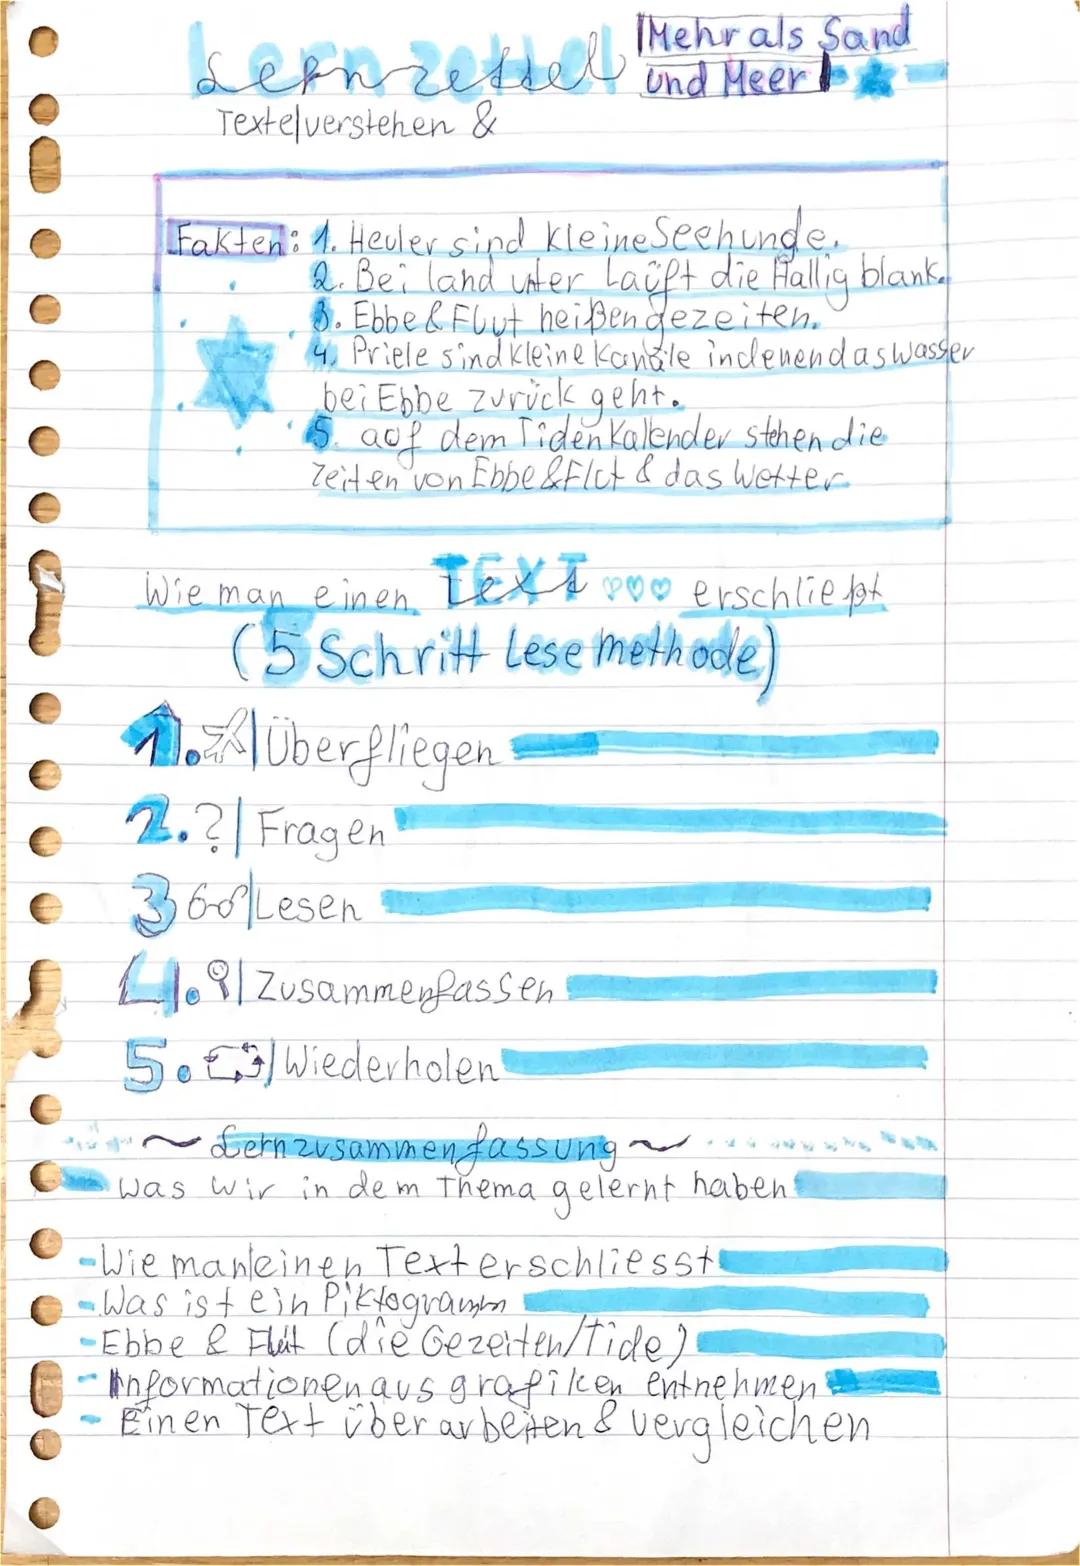 Lernzettel
Mehr als Sand
und Meer
Texte verstehen &
Fakten: 1. Heuler sind kleine Seehunde.
2. Bei land unter Läuft die Hallig blank.
3. Ebbe & Flut heißen gezeiten.
4. Priele sind kleine Kanäle in denen das Wasser
bei Ebbe zurück geht.
5. auf dem Tidenkalender stehen die
Zeiten von Ebbe & Flut & das Wetter
Wie man einen Text erschließt
(5 Schritt Lesemethode)
1. | Überfliegen
2. ? | Fragen
3 | Lesen
4. | Zusammenfassen
5. | Wiederholen
~ Lernzusammenfassung ~
Was wir in dem Thema gelernt haben
- Wie man einen Text erschliesst
- Was ist ein Piktogramm
- Ebbe & Flut (die Gezeiten/Tide)
- Informationen aus grafiken entnehmen
- Einen Text überarbeiten & vergleichen